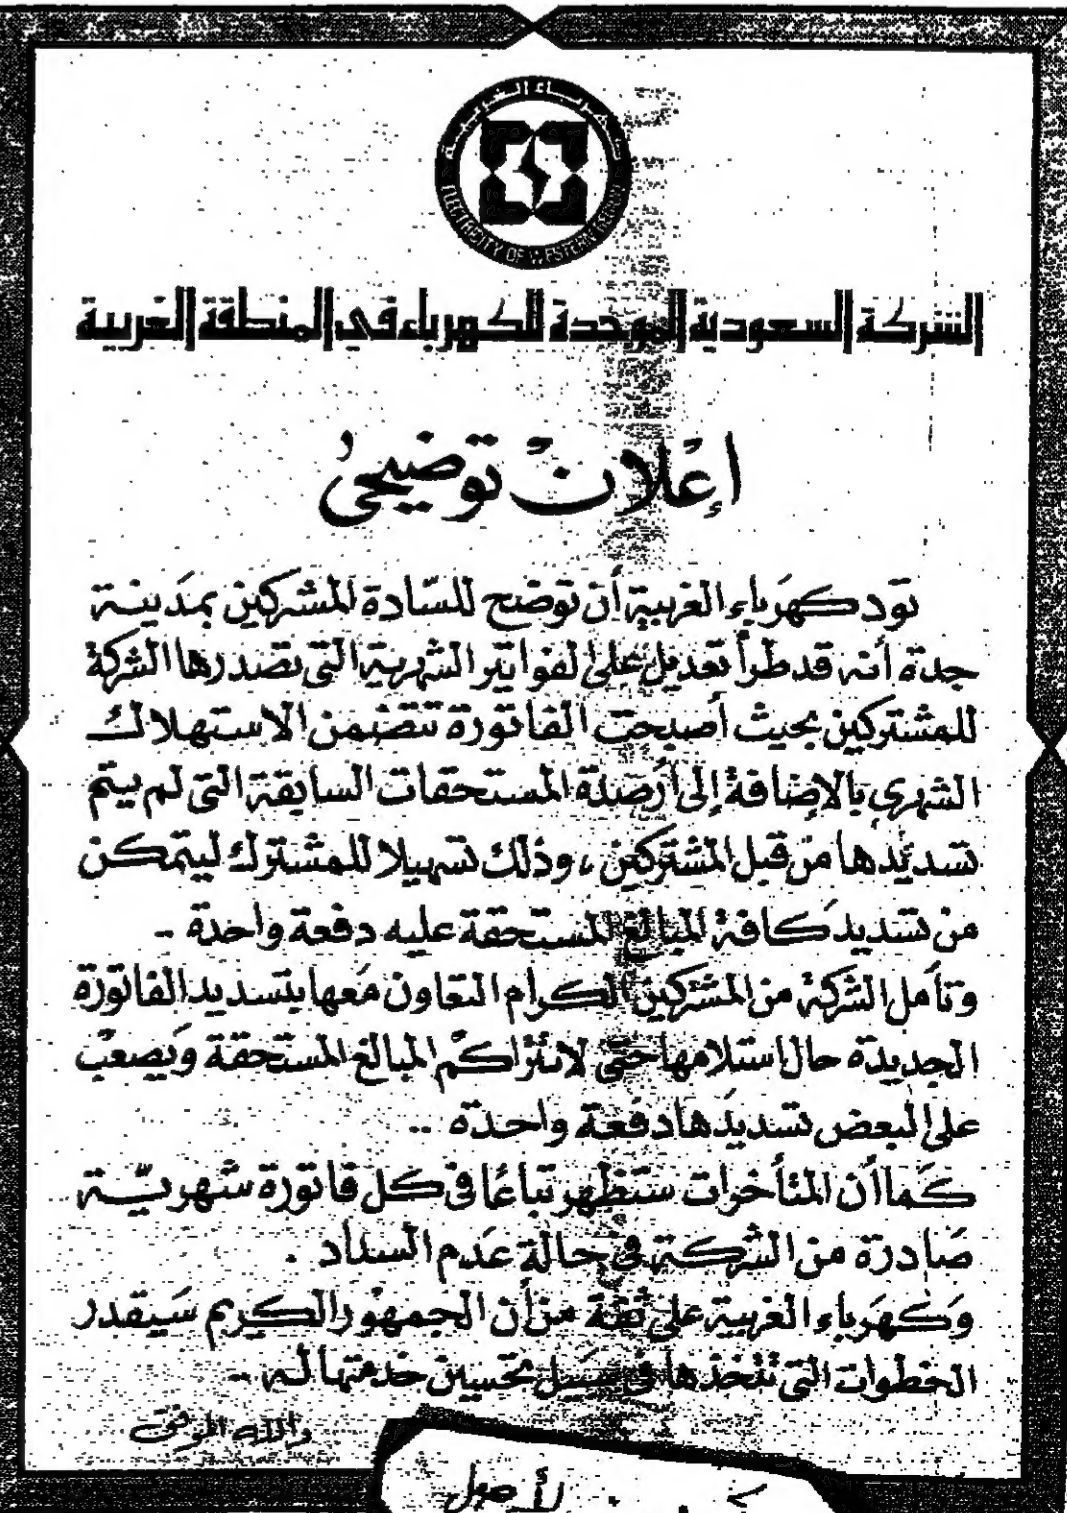 كهرباء الغربية
ELECTRICITY OF WESTERN REGION
الشركة السعودية الموحدة للكهرباء في المنطقة الغربية
إعلان توضيحي
تود كهرباء الغربية أن توضح للسادة المشتركين بمدينة
جدة أنه قد طرأ تعديل على الفواتير الشهرية التي تصدرها الشركة
للمشتركين بحيث أصبحت الفاتورة تتضمن الاستهلاك
الشهري بالإضافة إلى أرصدة المستحقات السابقة التي لم يتم
تسديدها من قبل المشتركين، وذلك تسهيلا للمشترك ليتمكن
من تسديد كافة المبالغ المستحقة عليه دفعة واحدة ..
وتأمل الشركة من المشتركين الكرام التعاون معها بتسديد الفاتورة
الجديدة حال استلامها حتى لا تتراكم المبالغ المستحقة ويصعب
على البعض تسديدها دفعة واحدة ..
كما أن المتأخرات ستظهر تباعًا في كل فاتورة شهرية
صادرة من الشركة في حالة عدم السداد .
وكهرباء الغربية على ثقة من أن الجمهور الكريم سيقدر
الخطوات التي تتخذها في سبيل تحسين خدمتها له ..
والله الموفق